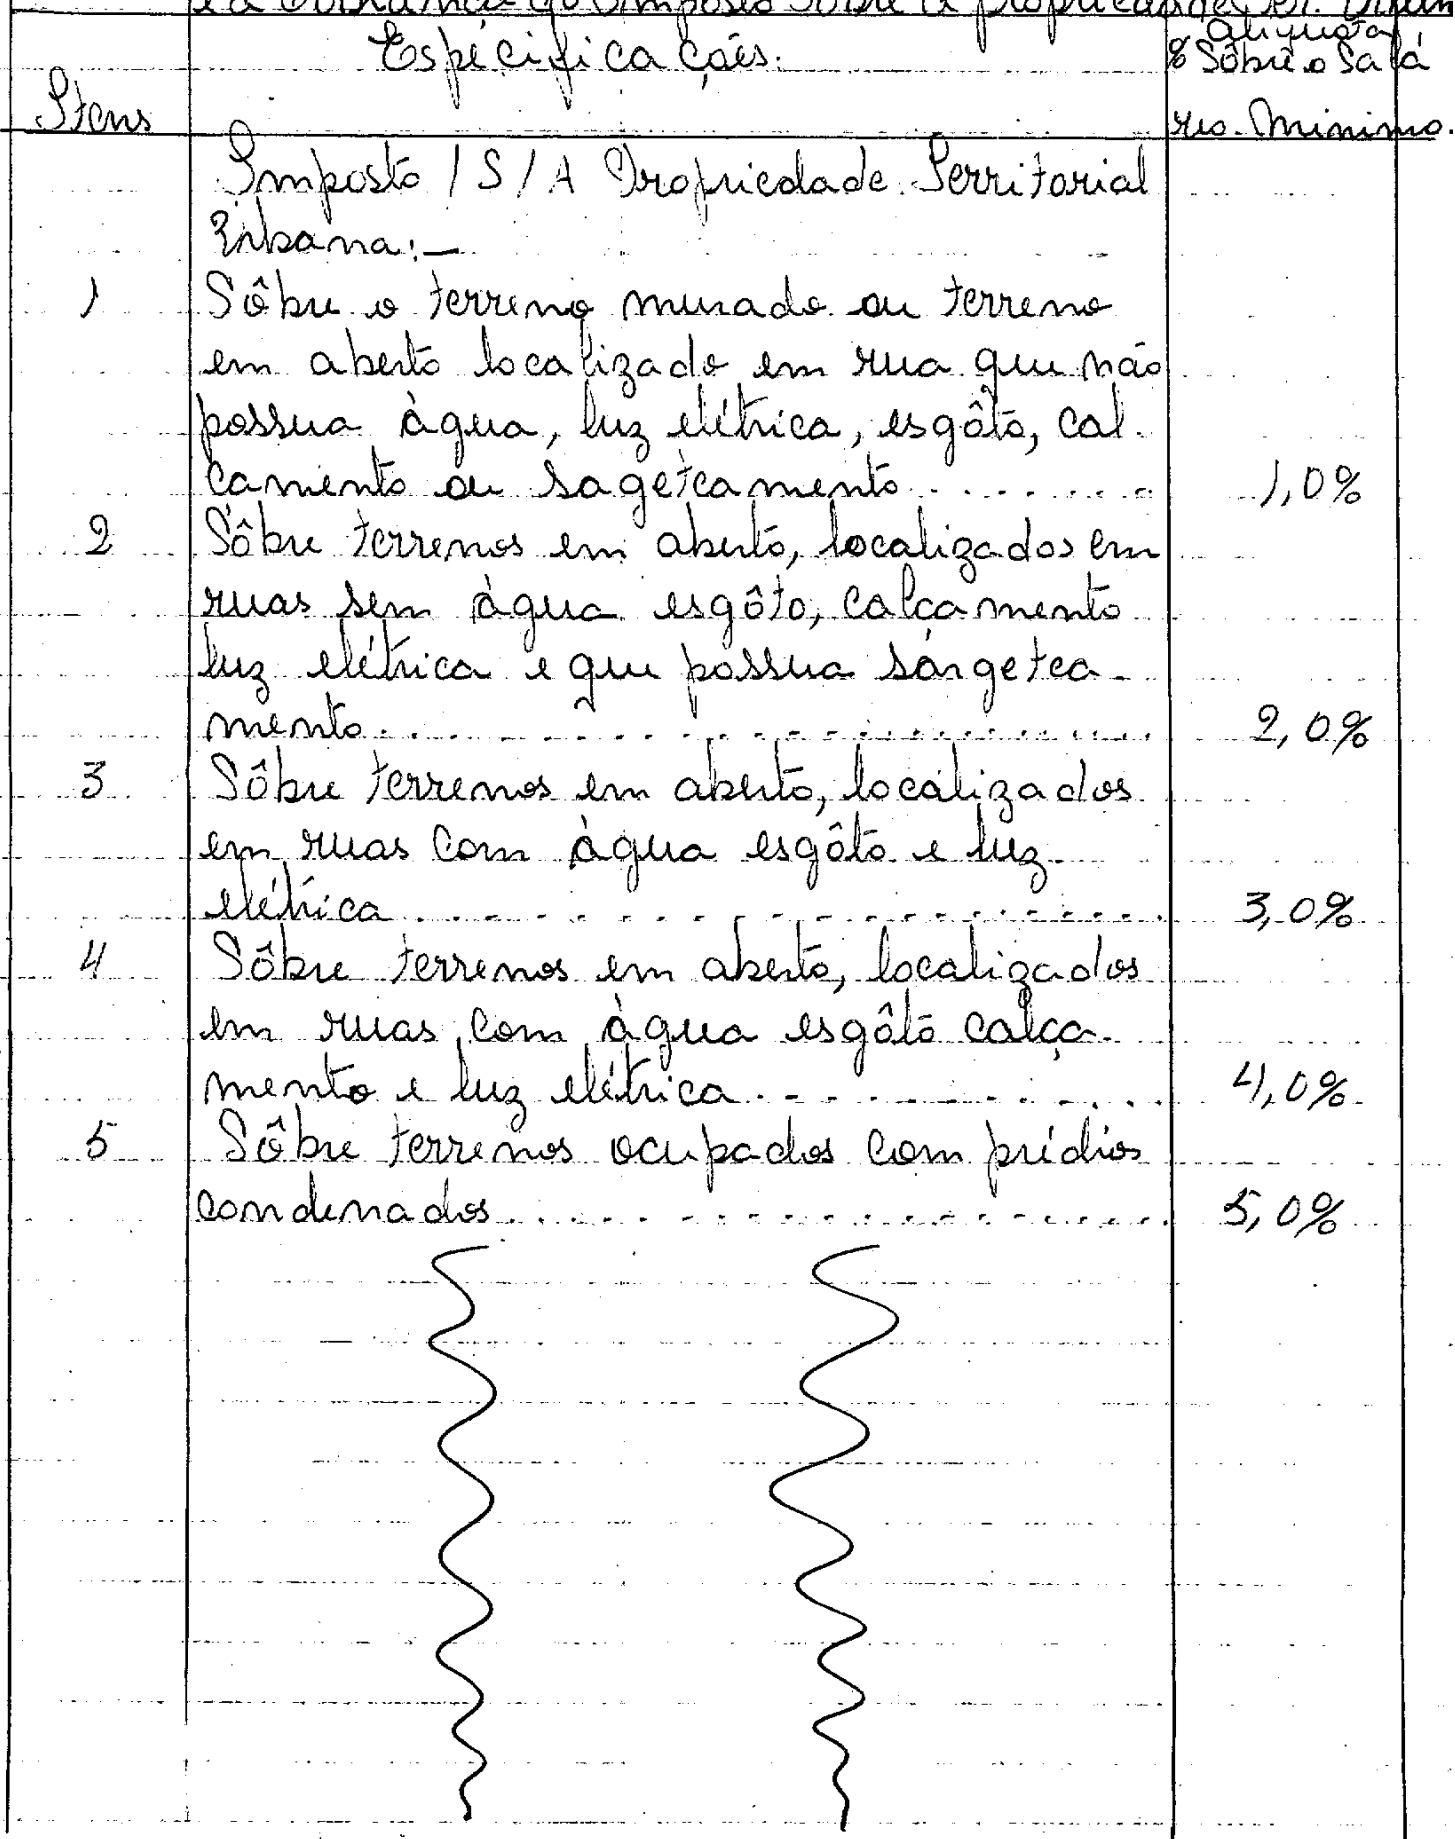 Imposto sobre a propriedade
Especificações.
Aliquota
% Sôbre o Salá
Itens
rio. Minimo.
Imposto / S / A Propriedade Territorial
Urbana:-
1 Sôbre o terreno murado ou terreno
em aberto localizado em rua que não
possua àgua, luz elétrica, esgôto, cal-
camento ou sagetcamento........ 1,0%
2 Sôbre terrenos em aberto, localizados em
ruas sem àgua esgôto, calçamento
luz elétrica e que possua sargetea-
mento........ 2,0%
3 Sôbre terrenos em aberto, localizados
em ruas com àgua esgôto e luz
elétrica........ 3,0%
4 Sôbre terrenos em aberto, localizados
em ruas com àgua esgôto calça-
mento e luz elétrica........ 4,0%
5 Sôbre terrenos ocupados com prédios
condenados........ 5,0%